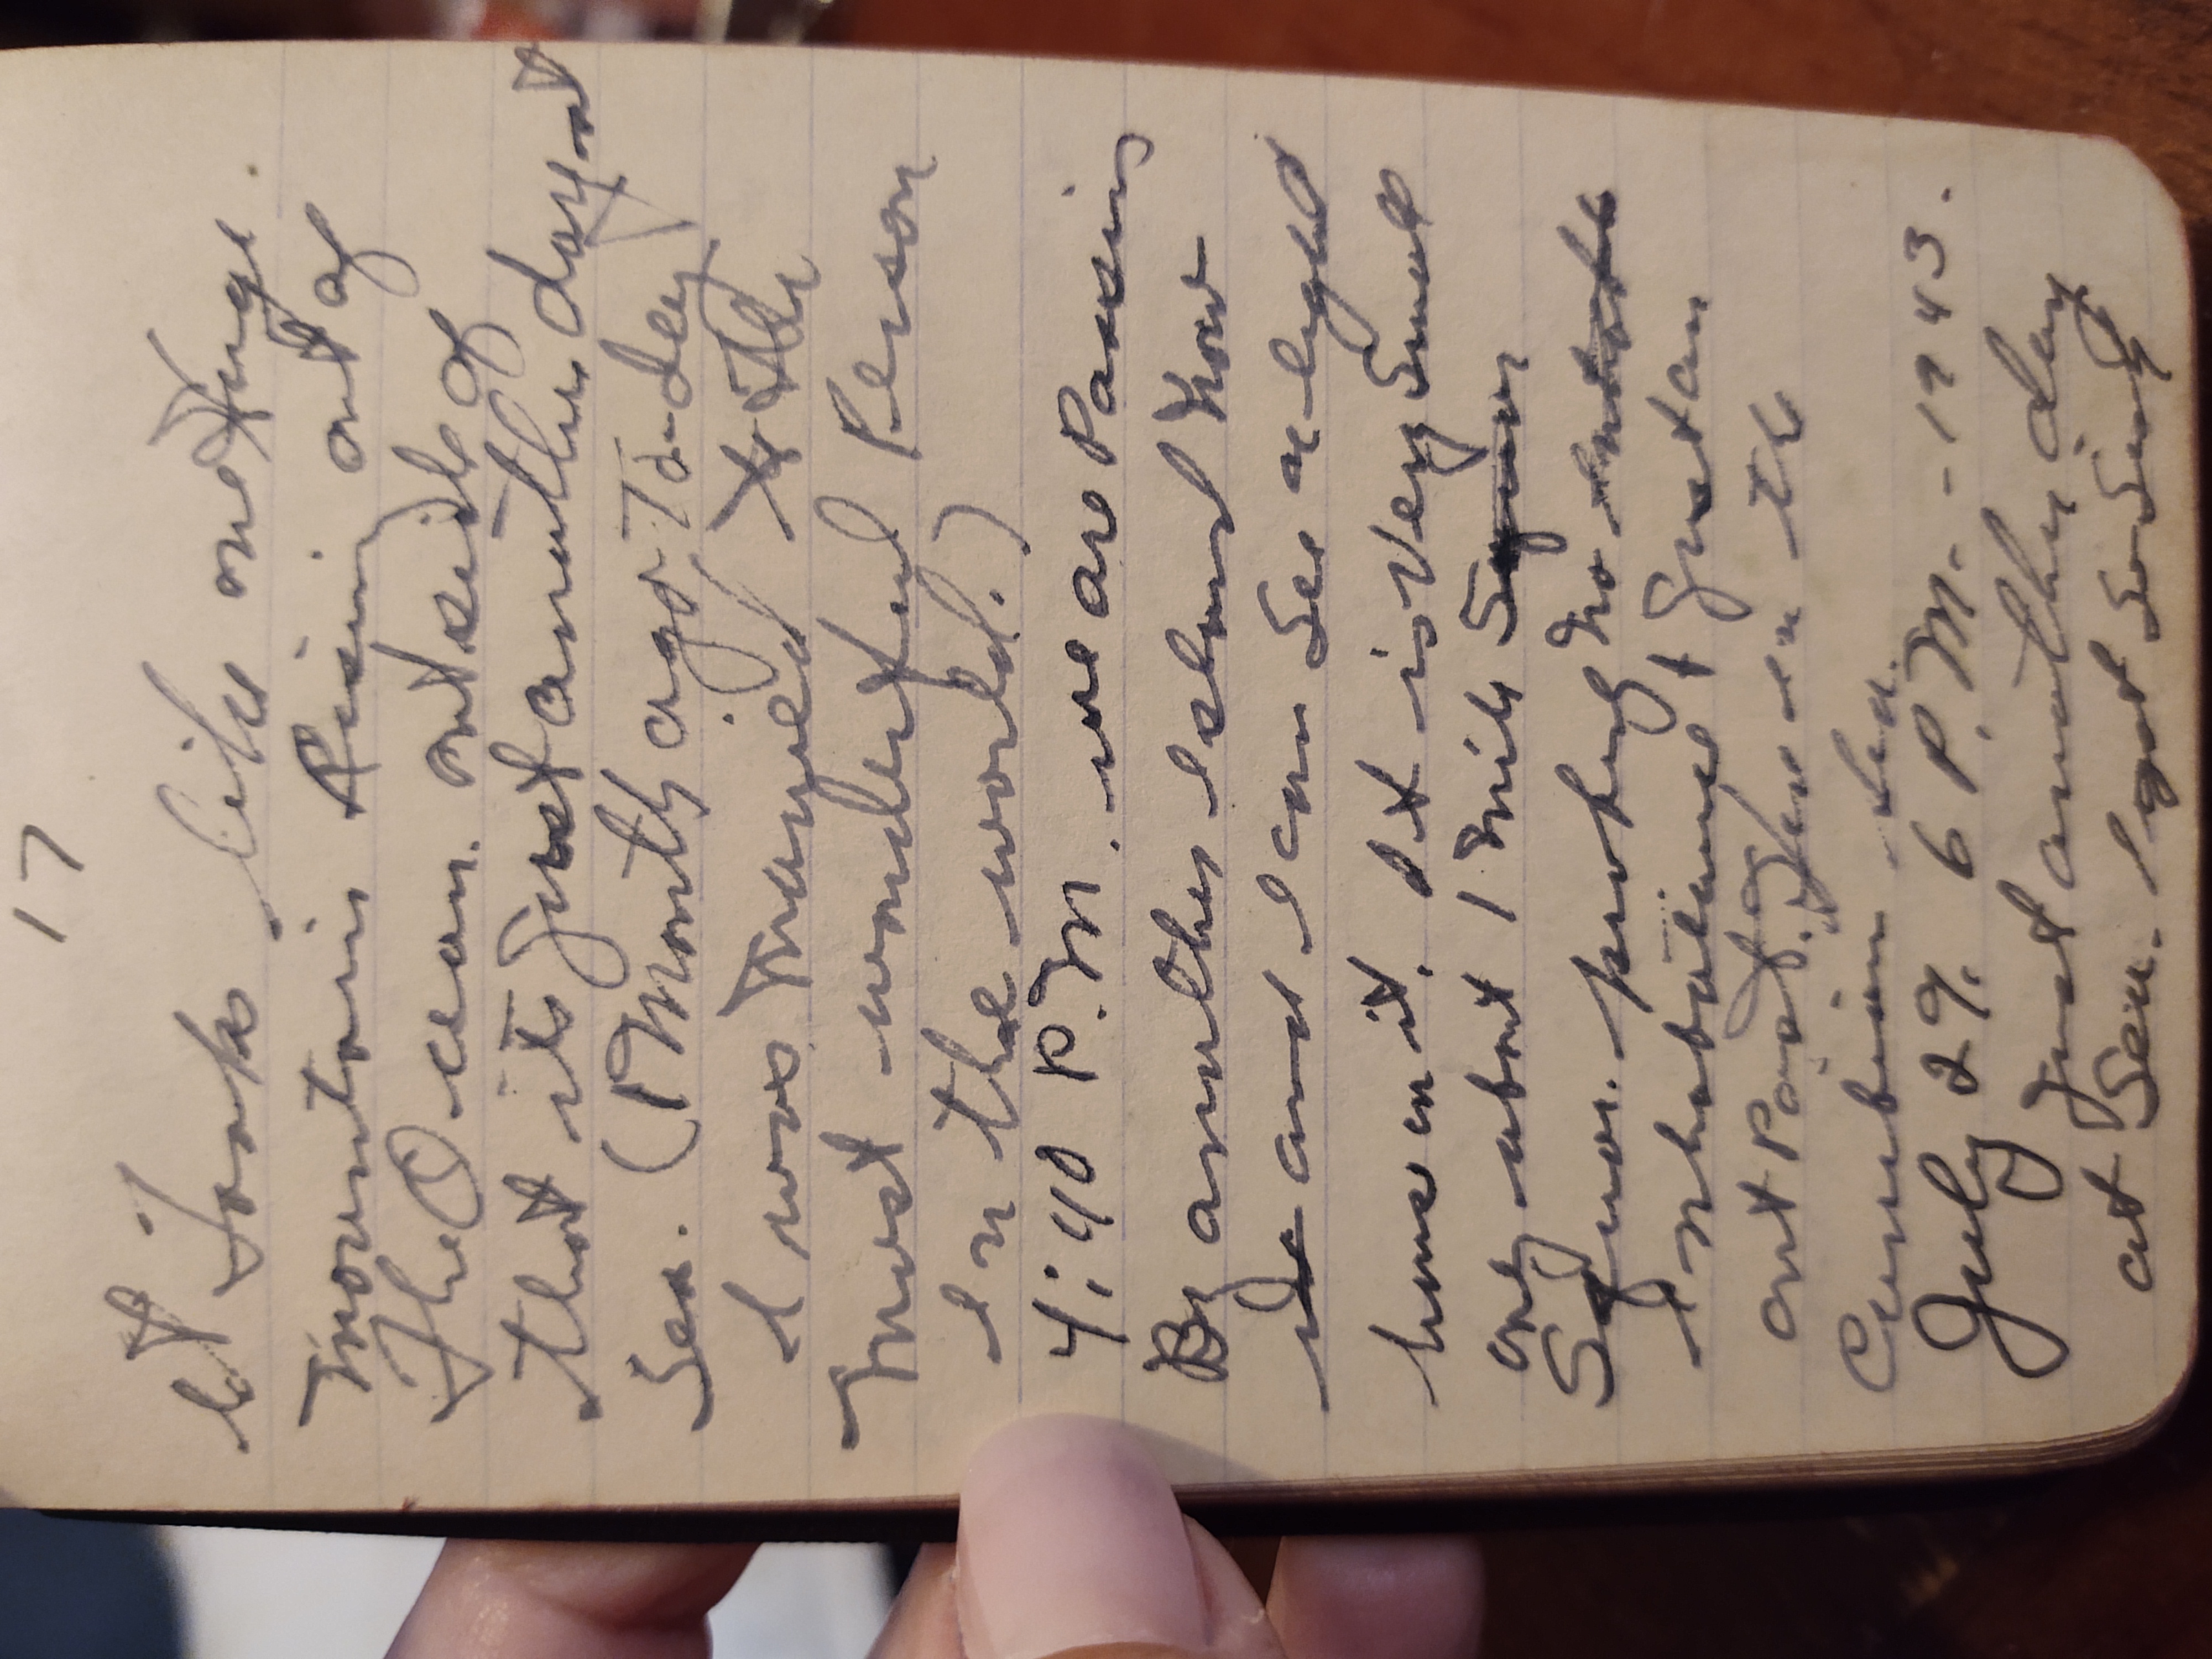 17
It looks like one huge
mountain Rising out of
The Ocean. outside of
that its Just another day at
Sea. (1 Month ago To-day
I was Maryied to the
most wonderful Person
in the world.)
4:40 P.M. we are Passing
By another Island now
and I can see a light
house on it. It is Very Small
only about 1 Mile
Square. probely no
inhabitance + Just an
out Post of
Caribbean Sea.
July 29. 6 P.M. - 1943.
Just another day
at Sea. I got Sea Sick